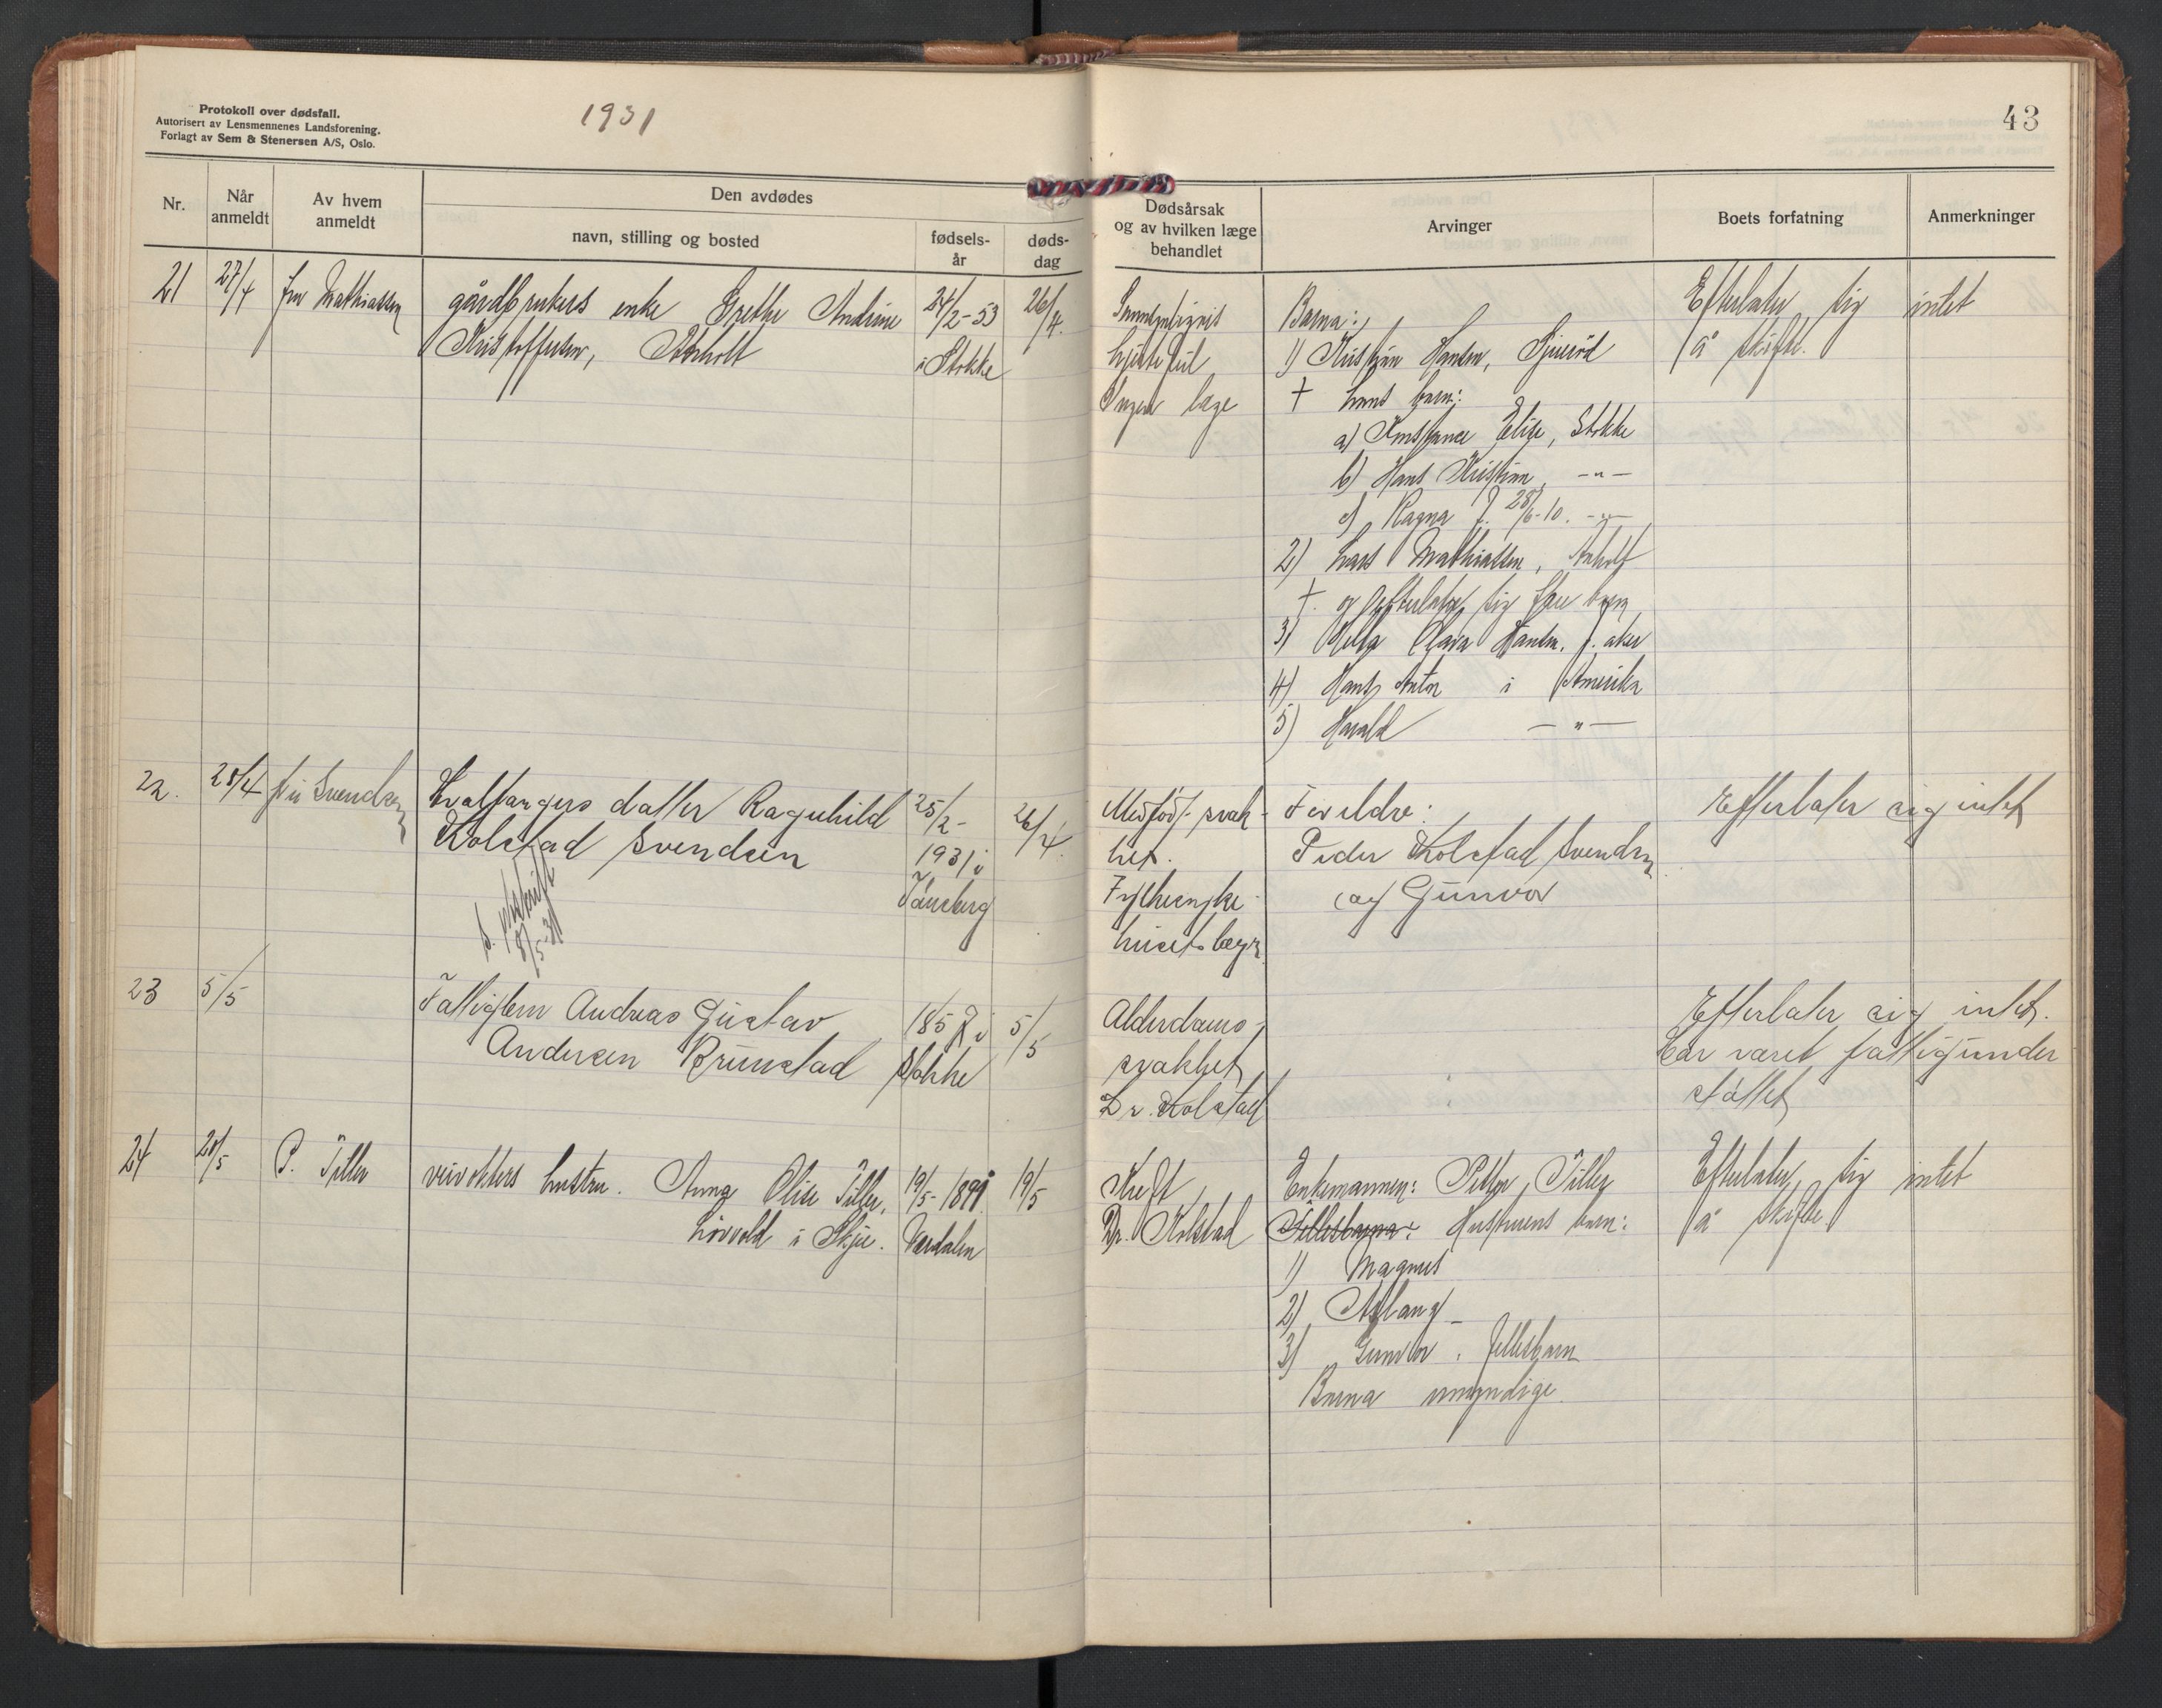 Protokoll over dødsfall.
Autorisert av Lensmennenes Landsforening.
Forlagt av Sem & Stenersen A/S, Oslo.
1931
43
Nr.
Når anmeldt
Av hvem anmeldt
Den avdødes
navn, stilling og bosted
fødsels-år
døds-dag
Dødsårsak
og av hvilken læge
behandlet
Arvinger
Boets forfatning
Anmerkninger
21 27/4 fru Mathiassen
gårdbrukers enke Grethe Andrine
Kristoffersen,
24/2-53
i Stokke
26/4.
hjertefeil
Ingen læge
Barna:
1) Kristian Hansen,
† hans barn:
a) Konstance Elise, Stokke
b) Hans Kristian, -"-
c) Ragna f. 28/6-10. -"-
2) Lars Mathiassen,
† og efterlater sig barn
3) Clara Hansen.
4) Hans Anton i Amerika
5) Harald -"-
Efterlater sig intet
å skifte.
22. 28/4 fru Svendsen
Hvalfangers datter Ragnhild
Kolstad Svendsen
25/2-
1931 i
Tønsberg
26/4.
Medfødt svak-
het.
Fylkessyke-
husets læge
Foreldre:
Peder Kolstad Svendsen
og Gunvor
Efterlater sig intet
23 5/5
Fattiglem Andreas Gustav
Andersen Brunstad
Stokke
5/5
Alderdoms-
svakhet
Dr. Kolstad
Efterlater sig intet.
Har været fattigunder
støttet
24 20/5 P. Tiller
veivokters hustru. Anna Olise Tiller,
Løvvold i Skjee.
19/5-1891.
Verdalen
19/5
Kreft
Dr. Kolstad
Enkemannen: Petter Tiller
Fellesbarna: Hustruens barn:
1) Magnus
2) Aslaug
3) Gunvor, fellesbarn
Barna umyndige.
Efterlater sig intet
å skifte